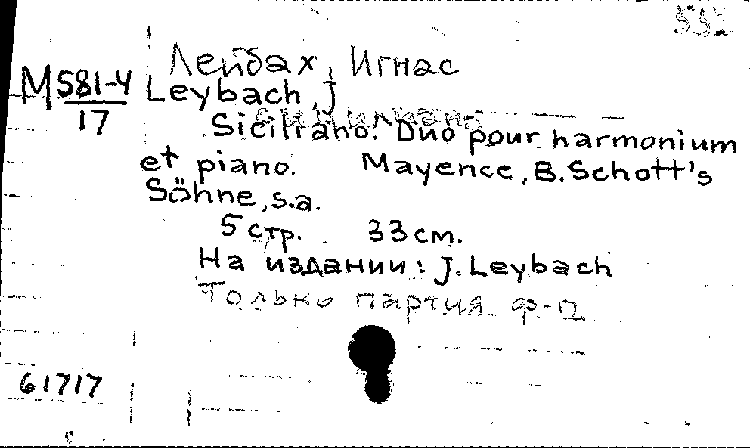 Лейбах, Игнас
М 581-4
17
Leybach, J
Siciliano. Duo pour harmonium
et piano. Mayence, B. Schott's
Söhne, s.a.
5 стр. 33 см.
На издании: J. Leybach
Только партия ф-п
61717